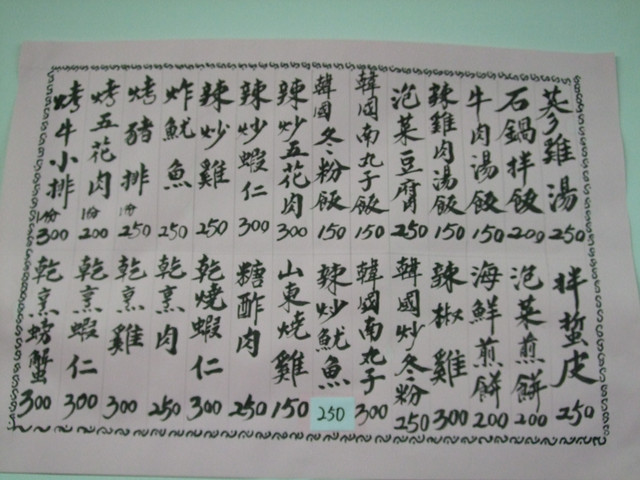 蔘雞湯 250
石鍋拌飯 200
牛肉湯飯 150
辣雞肉湯飯 150
泡菜豆腐 250
韓國南丸子飯 150
韓國冬粉飯 150
辣炒五花肉 300
辣炒蝦仁 300
辣炒雞 250
炸魷魚 250
烤豬排 1份 250
烤五花肉 1份 200
烤牛小排 1份 300
拌蜇皮 250
泡菜煎餅 200
海鮮煎餅 200
辣椒雞 300
韓國炒冬粉 250
韓國南丸子 300
辣炒魷魚 250
山東燒雞 150
糖酢肉 250
乾燒蝦仁 300
乾烹肉 250
乾烹雞 300
乾烹蝦仁 300
乾烹螃蟹 300